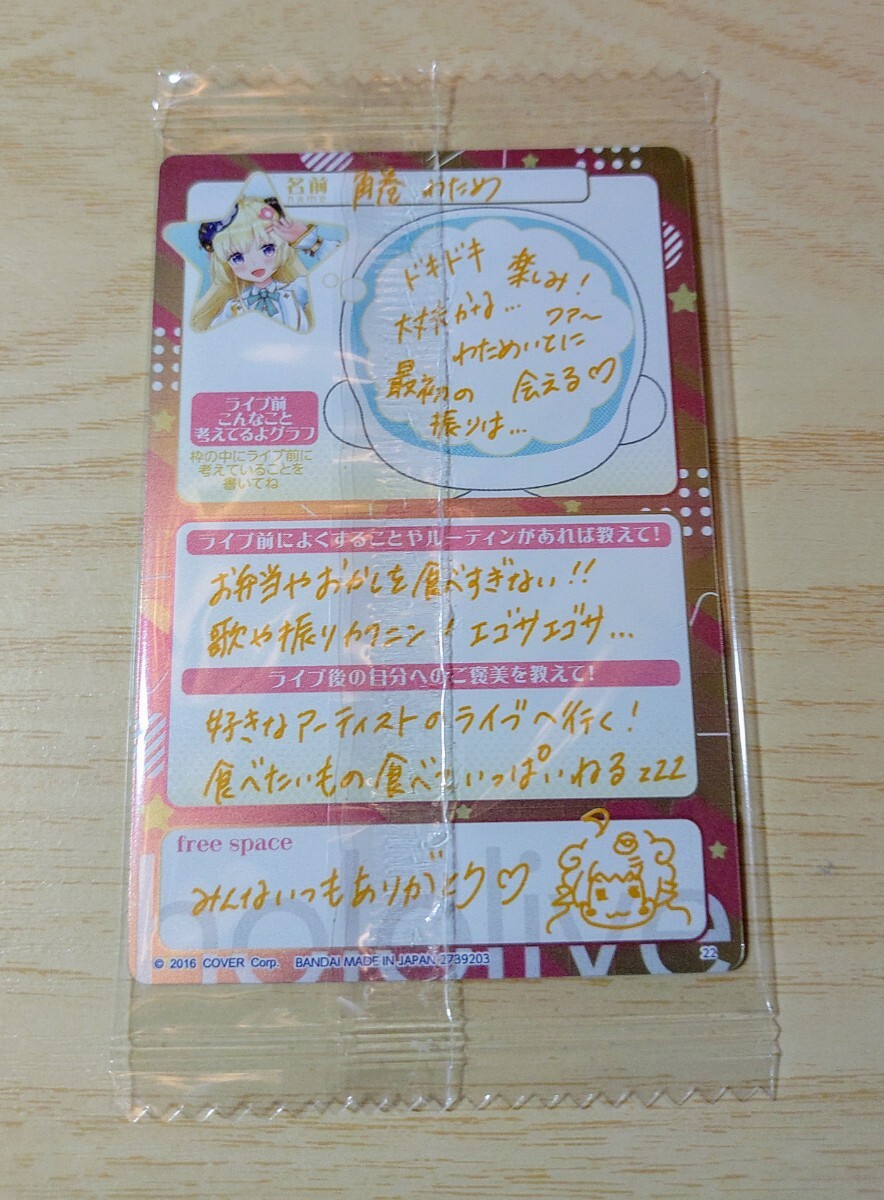 名前 角巻 わため
name
ドキドキ 楽しみ!
大丈夫かな... ワァ〜
わためいとに
最初の 会える♡
振りは...
ライブ前
こんなこと
考えてるよグラフ
枠の中にライブ前に
考えていることを
書いてね
ライブ前によくすることやルーティンがあれば教えて!
お弁当やおかしを食べすぎない!!
歌や振りカクニン! エゴサエゴサ...
ライブ後の自分へのご褒美を教えて!
好きなアーティストのライブへ行く!
食べたいもの食べていっぱいねるzzz
free space
みんないつもありがとう♡
hololive
© 2016 COVER Corp. BANDAI MADE IN JAPAN 2739203
22